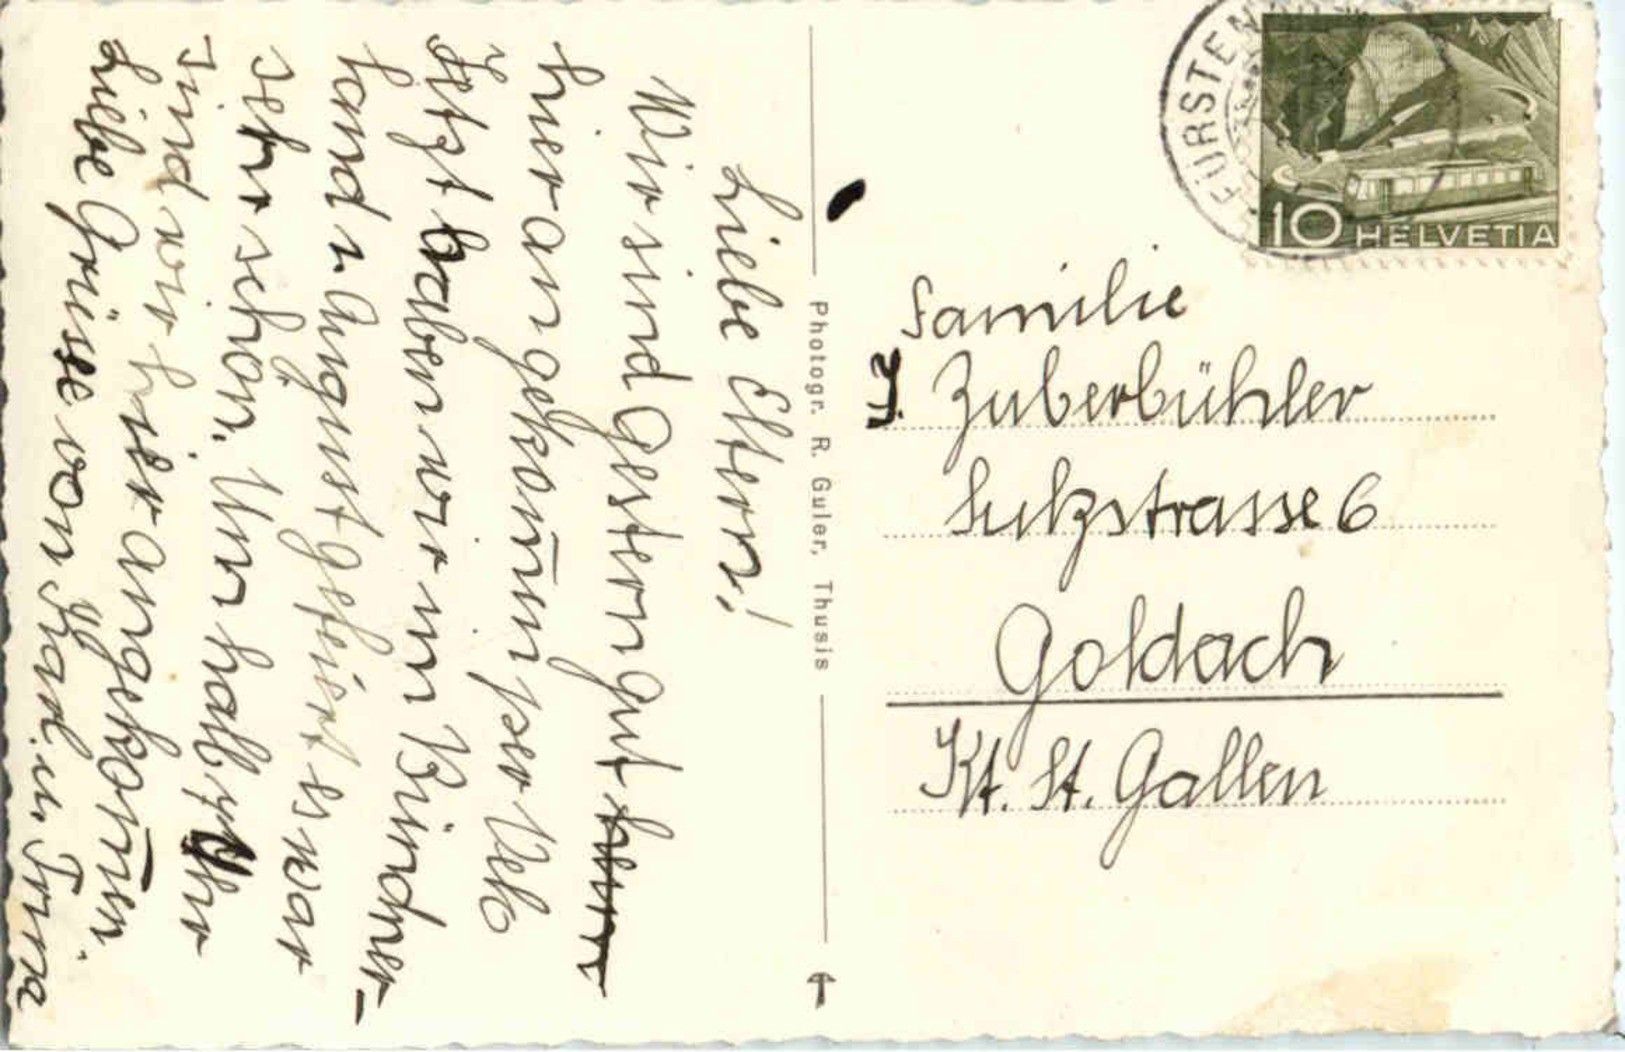 Liebe Eltern!
Wir sind Gestern gut
hier angekom̄en per Velo
Jetzt haben wir im Bündner-
land 1. August gefeiert es war
sehr schön. Um halb 7 Uhr
sind wir hier angekom̄en.
Liebe Grüsse von Karl u. Irma
Photogr. R. Guler, Thusis
FÜRSTEN
10 HELVETIA
Familie
J. Zuberbühler
Sulzstrasse 6
Goldach
Kt. St. Gallen